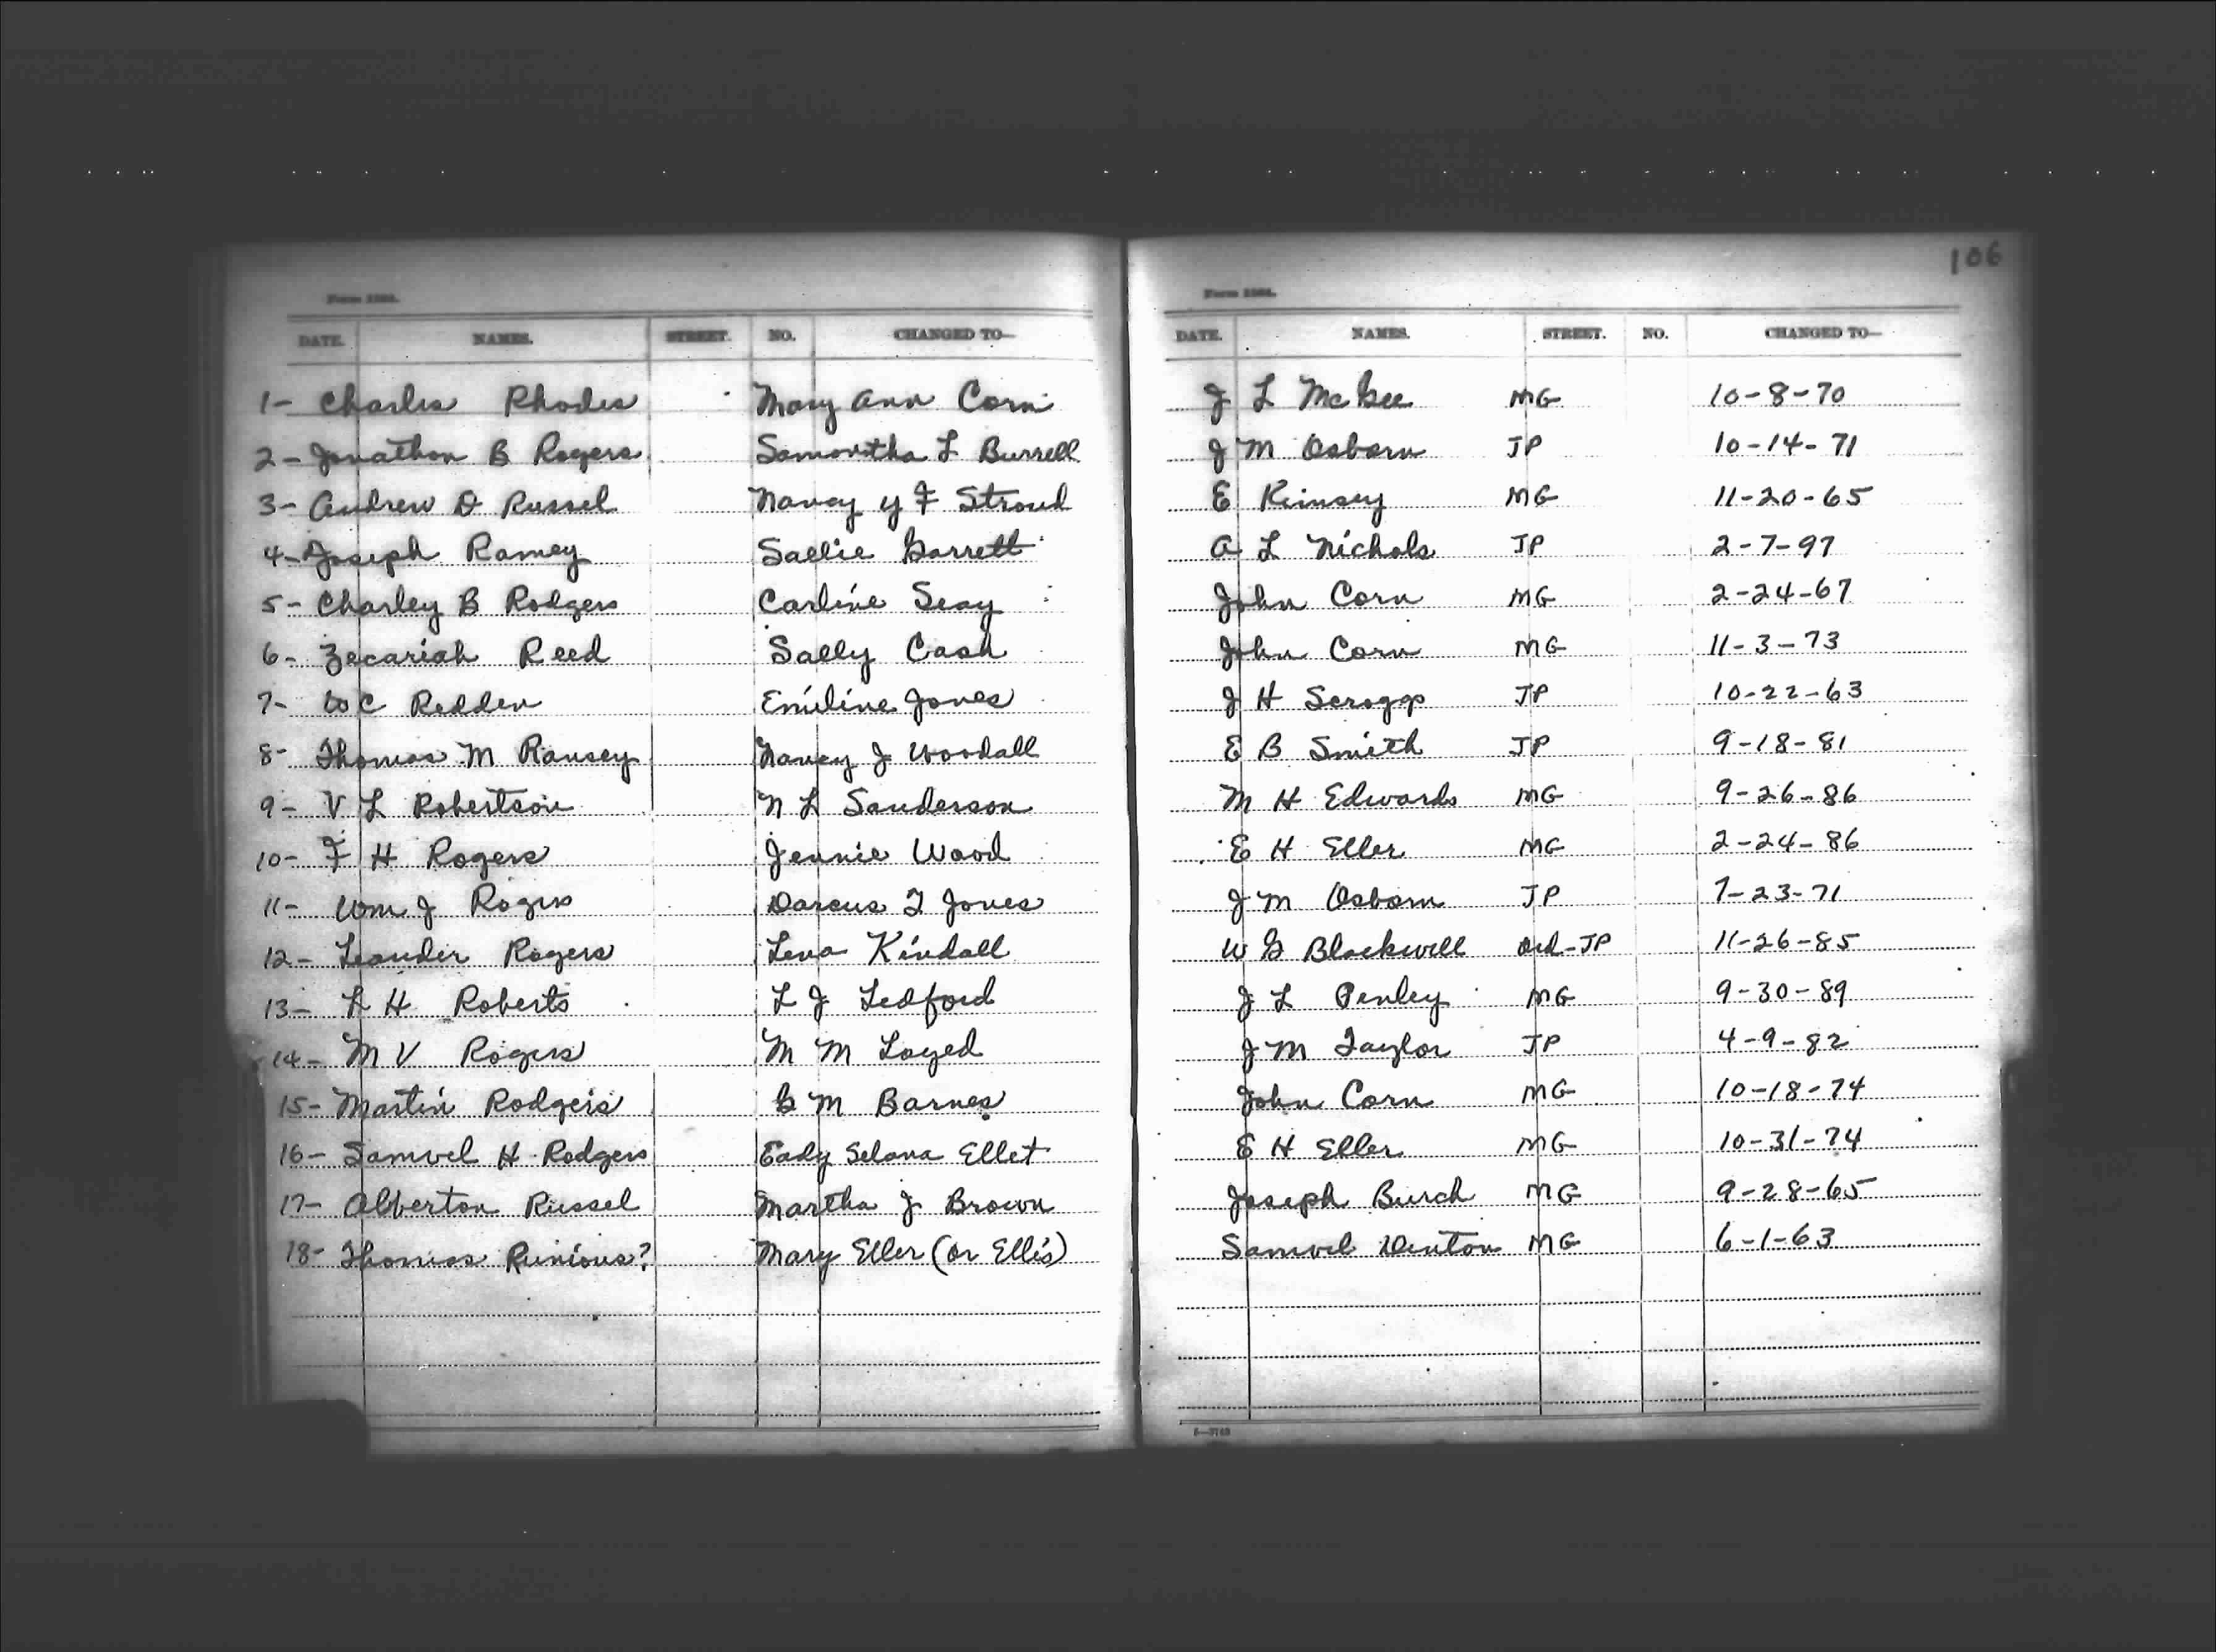 106
Form 1586.
DATE. NAMES. STREET. NO. CHANGED TO—
1- Charles Rhodes Mary Ann Corn
2- Jonathon B Rogers Samantha L Burrell
3- Andrew D Russel Nancy Y F Stroud
4- Joseph Ramey Sallie Garrett
5- Charley B Rodgers Carline Seay
6- Zecariah Reed Sally Cash
7- W C Redden Emiline Jones
8- Thomas M Ramsey Nancy J Woodall
9- V L Robertson N L Sanderson
10- F H Rogers Jennie Wood
11- Wm J Rogers Darcus T Jones
12- Leander Rogers Lena Kindall
13- L H Roberts L J Ledford
14- M V Rogers M M Loyed
15- Martin Rodgers G M Barnes
16- Samuel H Rodgers Eady Selana Ellet
17- Alberton Russel Martha J Brown
18- Thomas Runious? Mary Eller (or Ellis)
DATE. NAMES. STREET. NO. CHANGED TO—
J L McGee MG 10-8-70
J M Osborn JP 10-14-71
E Kimsey MG 11-20-65
A L Nichols JP 2-7-97
John Corn MG 2-24-67
John Corn MG 11-3-73
J H Scroggs JP 10-22-63
E B Smith JP 9-18-81
M H Edwards MG 9-26-86
E H Eller MG 2-24-86
J M Osborn JP 7-23-71
W G Blackwell Ord-JP 11-26-85
J L Penley MG 9-30-89
J M Taylor JP 4-9-82
John Corn MG 10-18-74
E H Eller MG 10-31-74
Joseph Burch MG 9-28-65
Samuel Denton MG 6-1-63